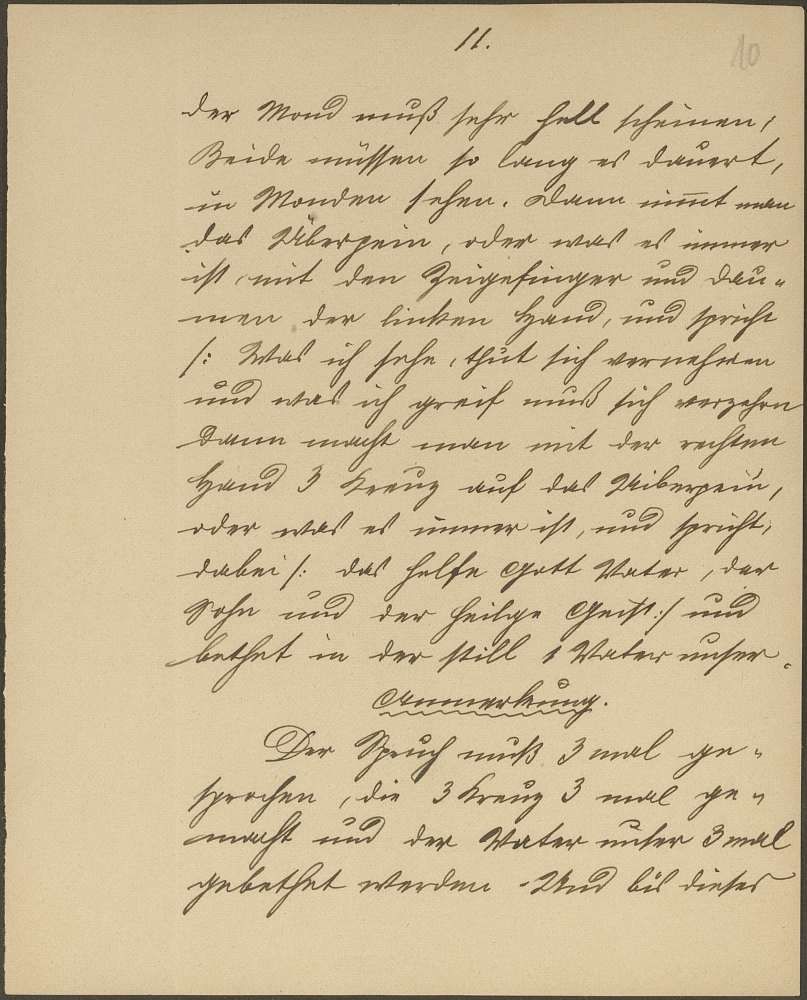 11.
10
der Mond muß sehr hell scheinen,
Beide müssen so lang es dauert,
in Monden sehen. Dann nimt man
das Überpein, oder was es immer
ist, mit den Zeigefinger und Dau-
men der linken Hand, und spricht
/: Was ich sehe, thut sich vermehren
und was ich greif muß sich verzehrn
Dann macht man mit der rechten
Hand 3 Kreuz auf das Uiberpein,
oder was es immer ist, und spricht,
dabei /: das helfe Gott Vater, der
Sohn und der heilge Geist :/ und
bethet in der still 1 Vater unser.
Anmerkung.
Der Spruch muß 3 mal ge-
sprochen, die 3 Kreuz 3 mal ge-
macht und der Vater unser 3 mal
gebethet werden. Und bis dieses